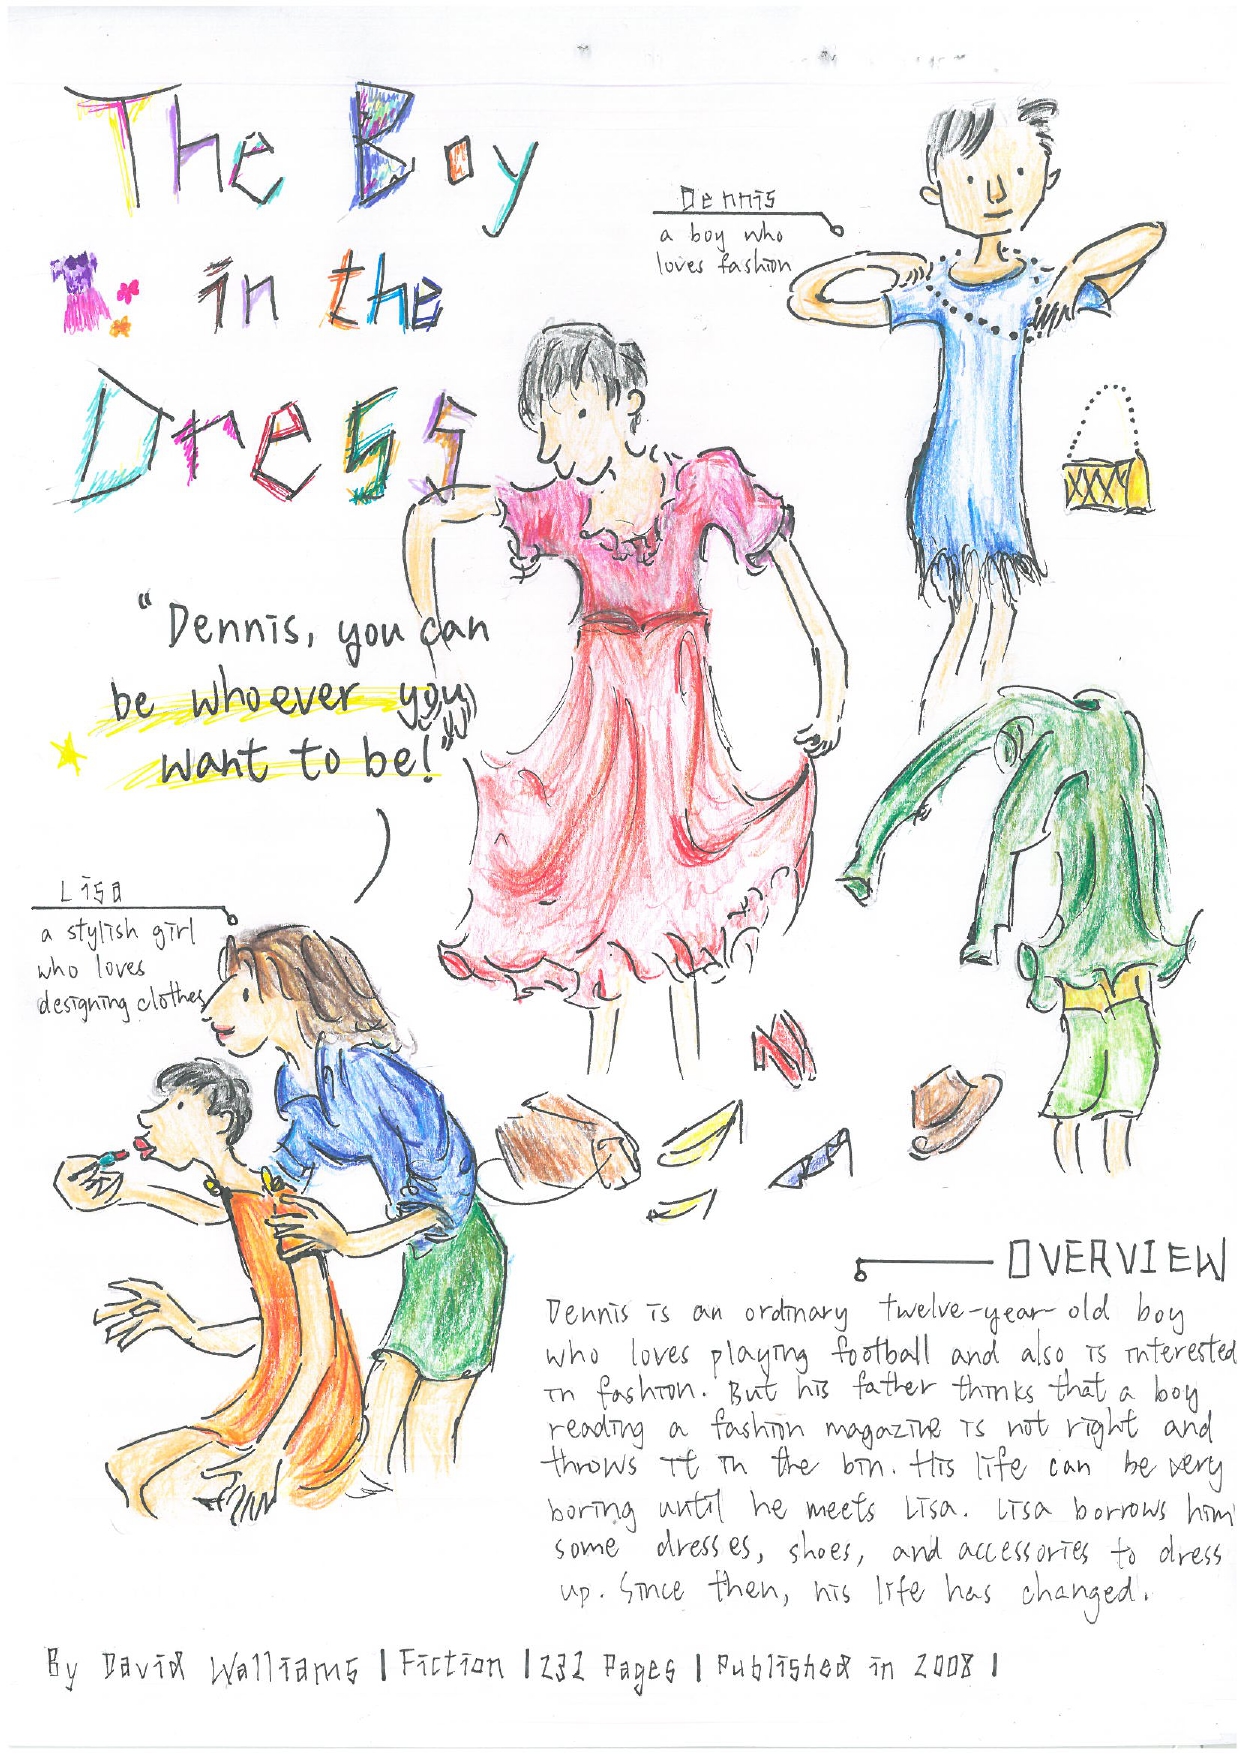 The Boy
in the
Dress
Dennis
a boy who
loves fashion
"Dennis, you can
be whoever you
want to be!"
Lisa
a stylish girl
who loves
designing clothes
OVERVIEW
Dennis is an ordinary twelve-year-old boy
who loves playing football and also is interested
in fashion. But his father thinks that a boy
reading a fashion magazine is not right and
throws it in the bin. His life can be very
boring until he meets Lisa. Lisa borrows him
some dresses, shoes, and accessories to dress
up. Since then, his life has changed.
By David Walliams | Fiction | 232 Pages | Published in 2008 |